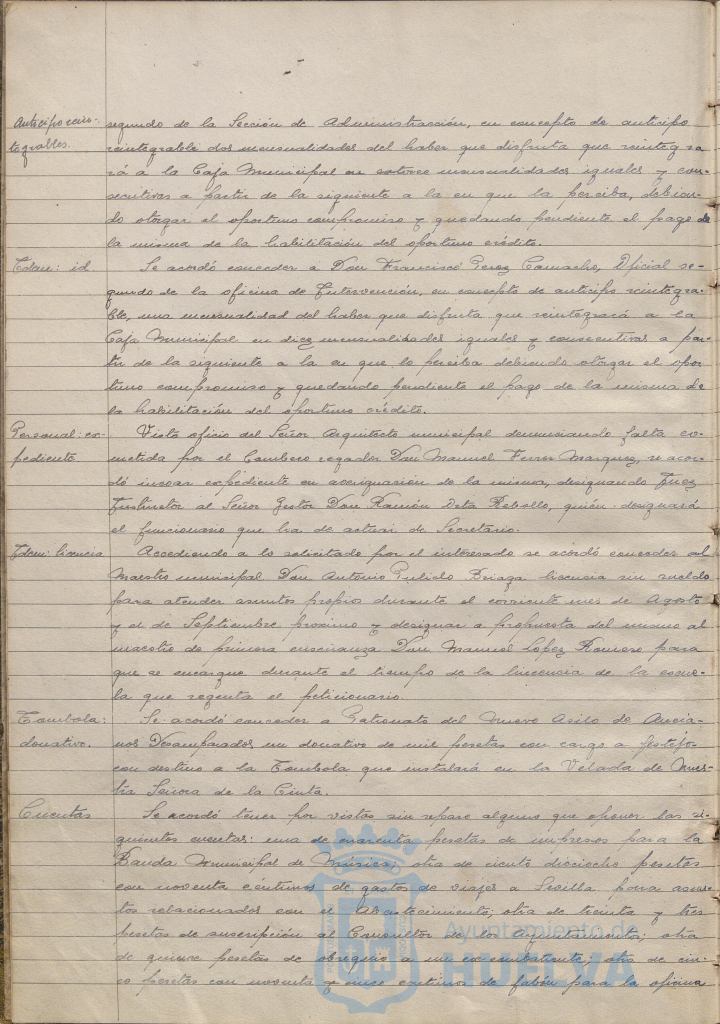 Anticipo rein-
tegrables.
segundo de la Sección de Administracción, en concepto de anticipo
reintegrable dos mensualidades del haber que disfruta que reintegra
rá a la Caja Municipal en catorce mensualidades iguales y con-
secutivas a partir de la siguiente a la en que la perciba, debien-
do otorgar el oportuno compromiso y quedando pendiente el pago de
la misma de la habilitación del oportuno crédito.
Idem: id
Se acordó conceder a Don Francisco Perez Camacho, Oficial se-
gundo de la oficina de Intervención, en concepto de anticipo reintegra-
ble, una mensualidad del haber que disfruta que reintegrará a la
Caja Municipal en diez mensualidades iguales y consecutivas a par-
tir de la siguiente a la en que lo perciba debiendo otorgar el opor
tuno compromiso y quedando pendiente el pago de la misma de
la habilitación del oportuno crédito.
Personal: ex-
pediente
Visto oficio del Señor Arquitecto municipal denunciando falta co-
metida por el Bombero regador Don Manuel Ferrer Marquez, se acor-
dó incoar expediente en averiguación de la misma, designando Juez
Instructor al Señor Gestor Don Ramón Rebollo, quién designará
el funcionario que ha de actuar de Secretario.
Idem: licencia
Accediendo a lo solicitado por el interesado se acordó conceder al
Maestro municipal Don Antonio Pulido liscencia sin sueldo
para atender asuntos propios durante el corriente mes de Agosto
y el de Septiembre proximo y designar a propuesta del mismo al
maestro de primera enseñanza Don Manuel Lopez Romero para
que se encargue durante el tiempo de la lincencia de la escue-
la que regenta el peticionario.
Tombola:
donativo.
Se acordó conceder a Patronato del Nuevo Asilo de Ancia-
nos Desamparados un donativo de mil pesetas con cargo a festejos
con destino a la Tombola que instalará en la Velada de Nues-
tra Señora de la Cinta.
Cuentas
Se acordó tener por vistas sin reparo alguno que oponer las si-
guientes cuentas: una de cuarenta pesetas de impresos para la
Banda Mmunicipal de Música; otra de ciento dieciocho pesetas
con noventa céntimos de gastos de viajes a Sevilla para asun-
tos relacionados con el Abastecimiento; otra de treinta y tres
pesetas de suscripción al Consultor de los Ayuntamientos; otra
de quince pesetas de obsequio a un ex-combatiente; otra de cin-
co pesetas con noventa y cinco centimos de jabón para la oficina
Ayuntamiento de
HUELVA